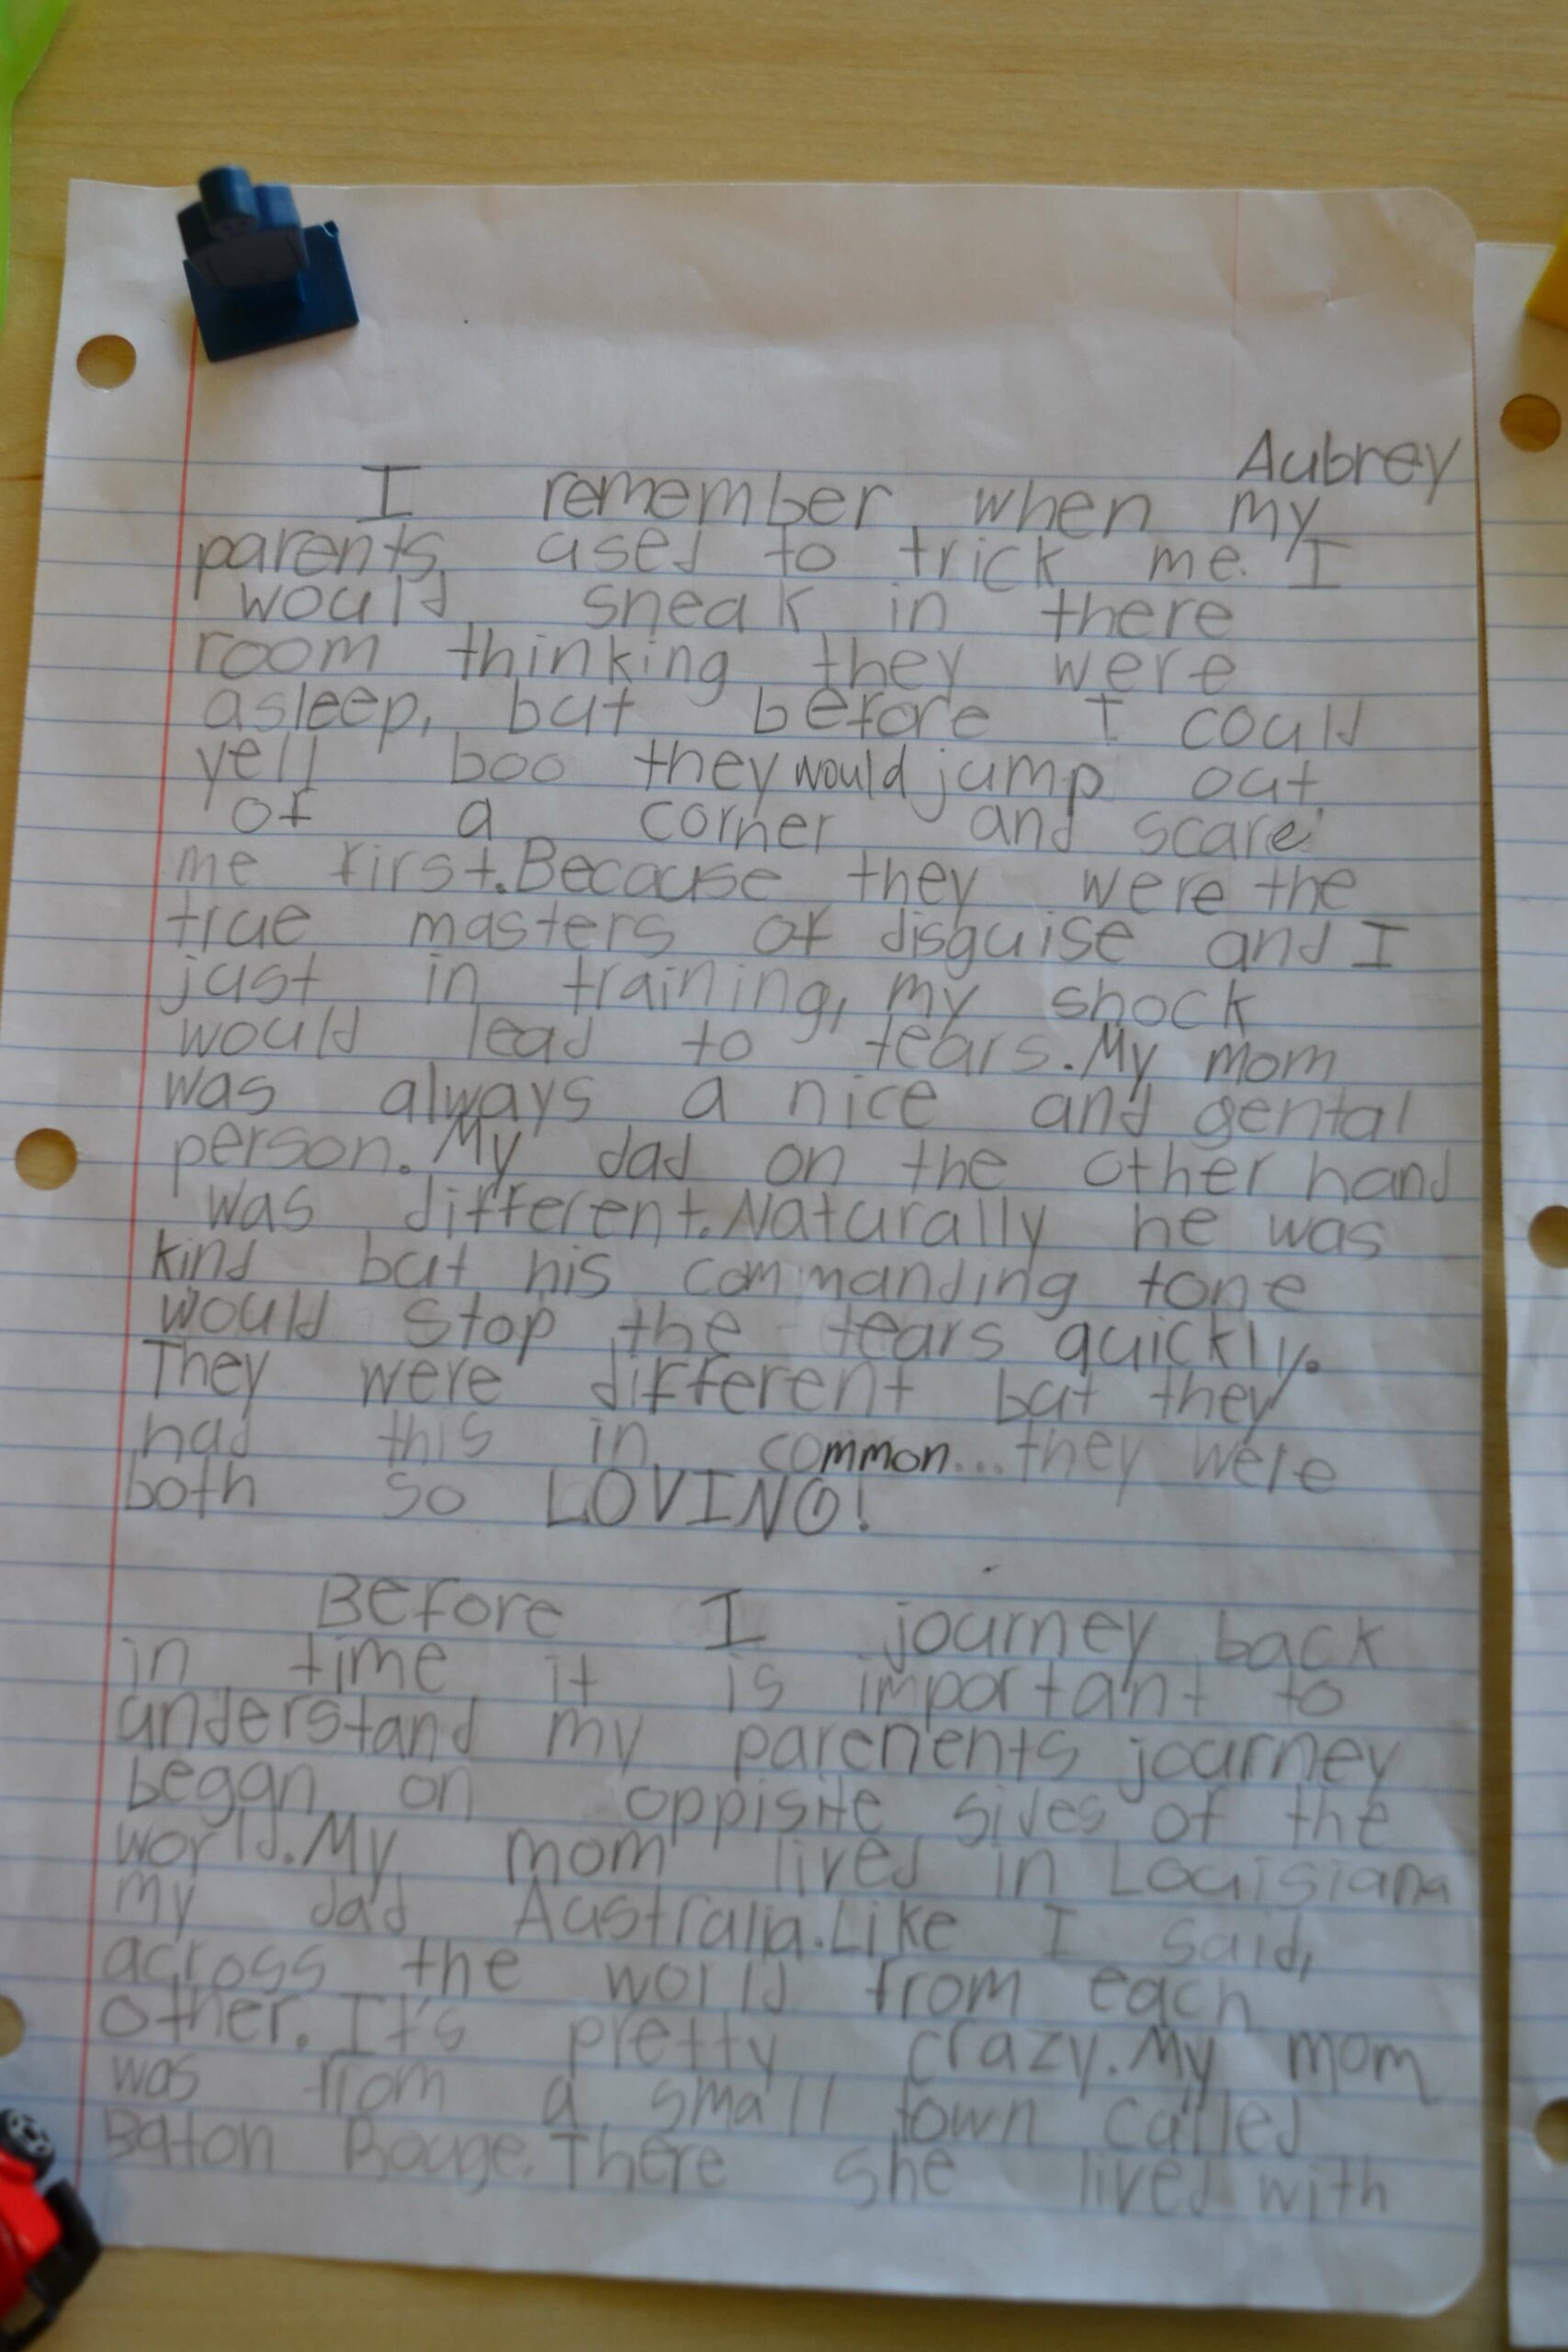 Aubrey
I remember when my
parents used to trick me. I
would sneak in there
room thinking they were
asleep, but before I could
yell boo they would jump out
of a corner and scare
me first. Because they were the
true masters of disguise and I
just in training, my shock
would lead to tears. My mom
was always a nice and gental
person. My dad on the other hand
was different. Naturally he was
kind but his commanding tone
would stop the tears quickly.
They were different but they
had this in common... they were
both so LOVING!
Before I journey back
in time it is important to
understand my parenents journey
began on oppisite sides of the
world. My mom lived in Louisiana
my dad Australia. Like I said,
across the world from each
other. It's pretty crazy. My mom
was from a small town called
Baton Rouge. There she lived with